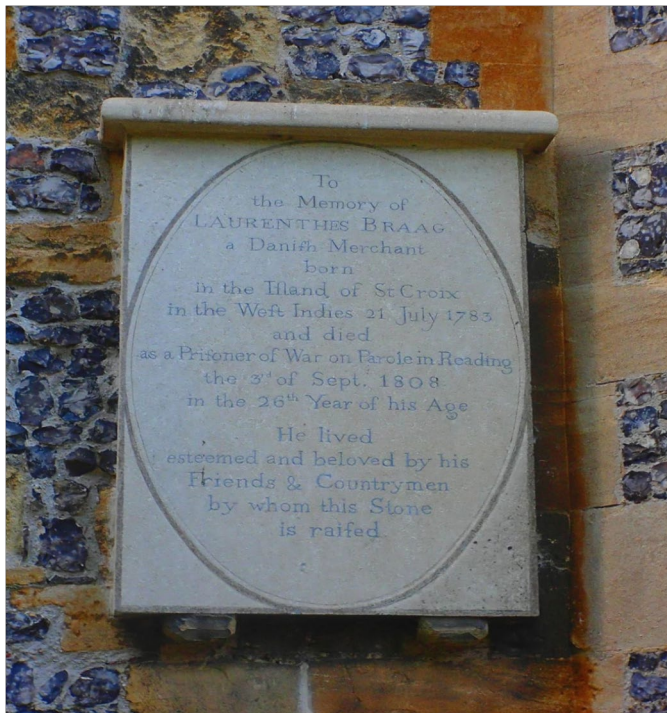 To
the Memory of
LAURENTHES BRAAG
a Daniſh Merchant
born
in the Iſland of St Croix
in the Weſt Indies 21 July 1783
and died
as a Priſoner of War on Parole in Reading
the 3rd of Sept. 1808
in the 26th Year of his Age
He lived
esteemed and beloved by his
Friends & Countrymen
by whom this Stone
is raiſed